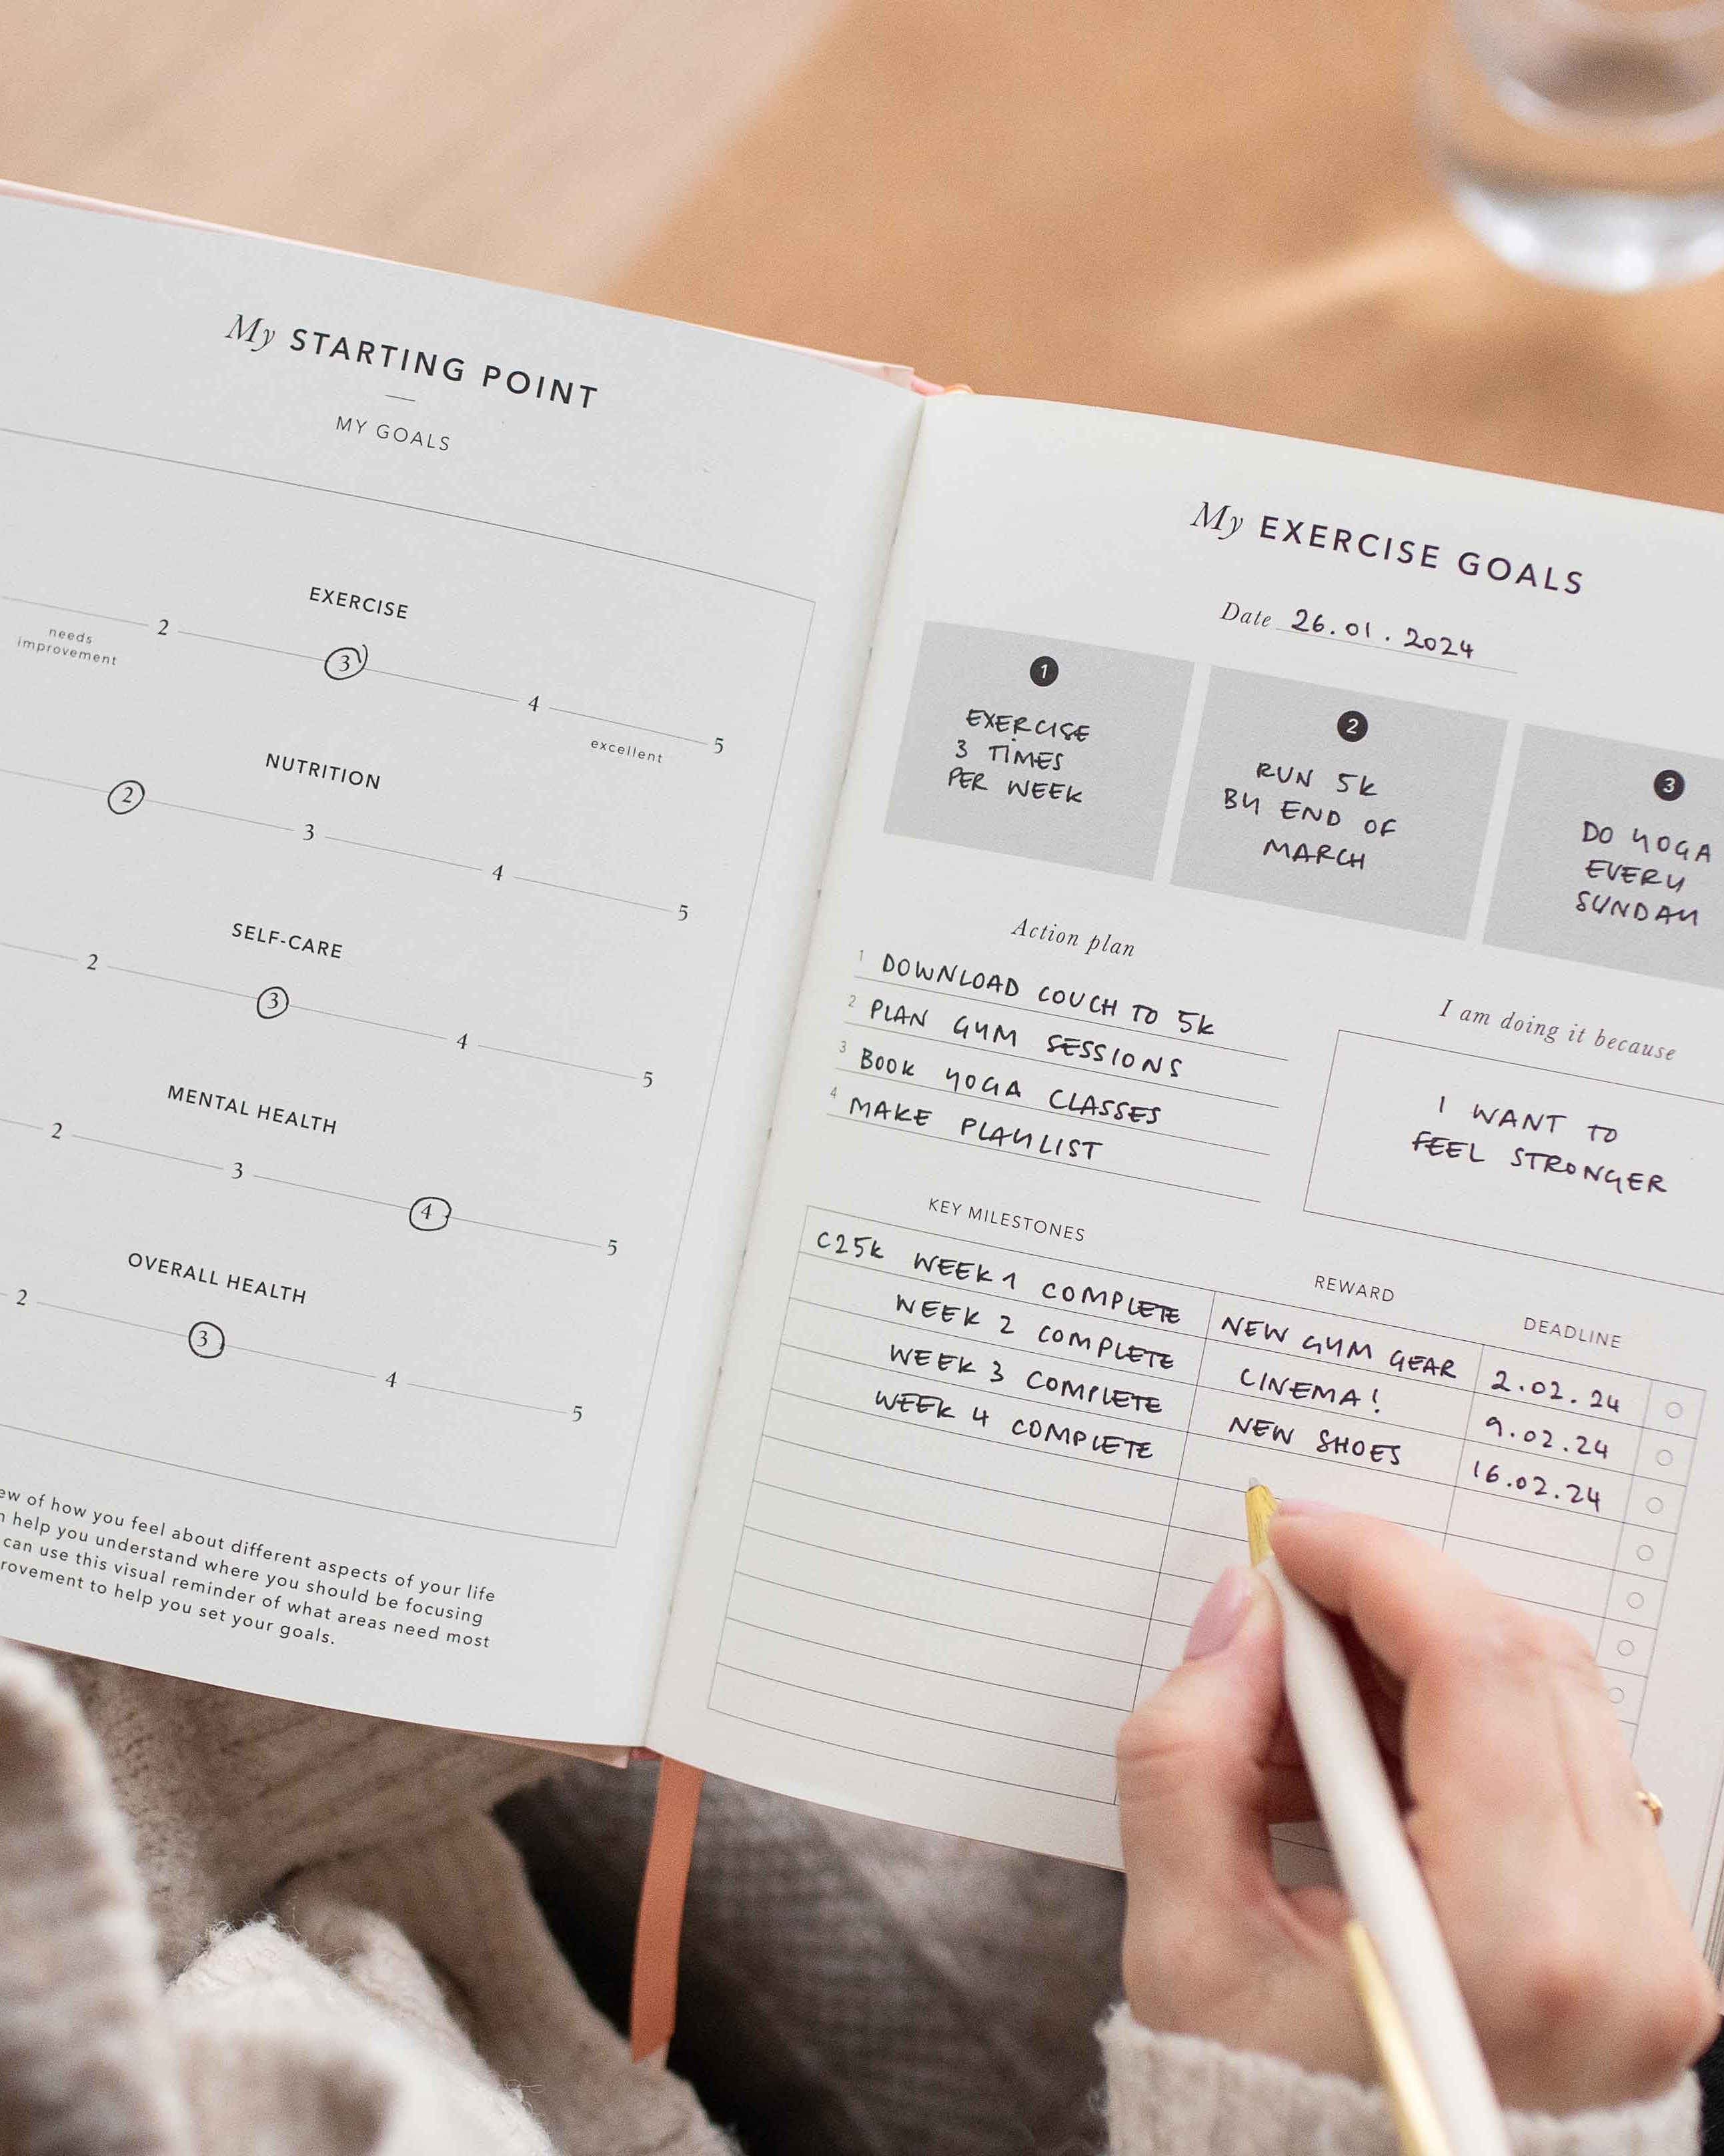 My STARTING POINT
MY GOALS
EXERCISE
2 3 4 5
needs
improvement
excellent
NUTRITION
2 3 4 5
SELF-CARE
2 3 4 5
MENTAL HEALTH
2 3 4 5
OVERALL HEALTH
2 3 4 5
of how you feel about different aspects of your life
help you understand where you should be focusing
can use this visual reminder of what areas need most
to help you set your goals.
My EXERCISE GOALS
Date 26.01.2024
1
EXERCISE
3 TIMES
PER WEEK
2
RUN 5k
BY END OF
MARCH
3
DO YOGA
EVERY
SUNDAY
Action plan
1 DOWNLOAD COUCH TO 5k
2 PLAN GYM SESSIONS
3 BOOK YOGA CLASSES
4 MAKE PLAYLIST
I am doing it because
I WANT TO
FEEL STRONGER
KEY MILESTONES REWARD DEADLINE
C25k WEEK 1 COMPLETE NEW GYM GEAR 2.02.24
WEEK 2 COMPLETE CINEMA! 9.02.24
WEEK 3 COMPLETE NEW SHOES 16.02.24
WEEK 4 COMPLETE